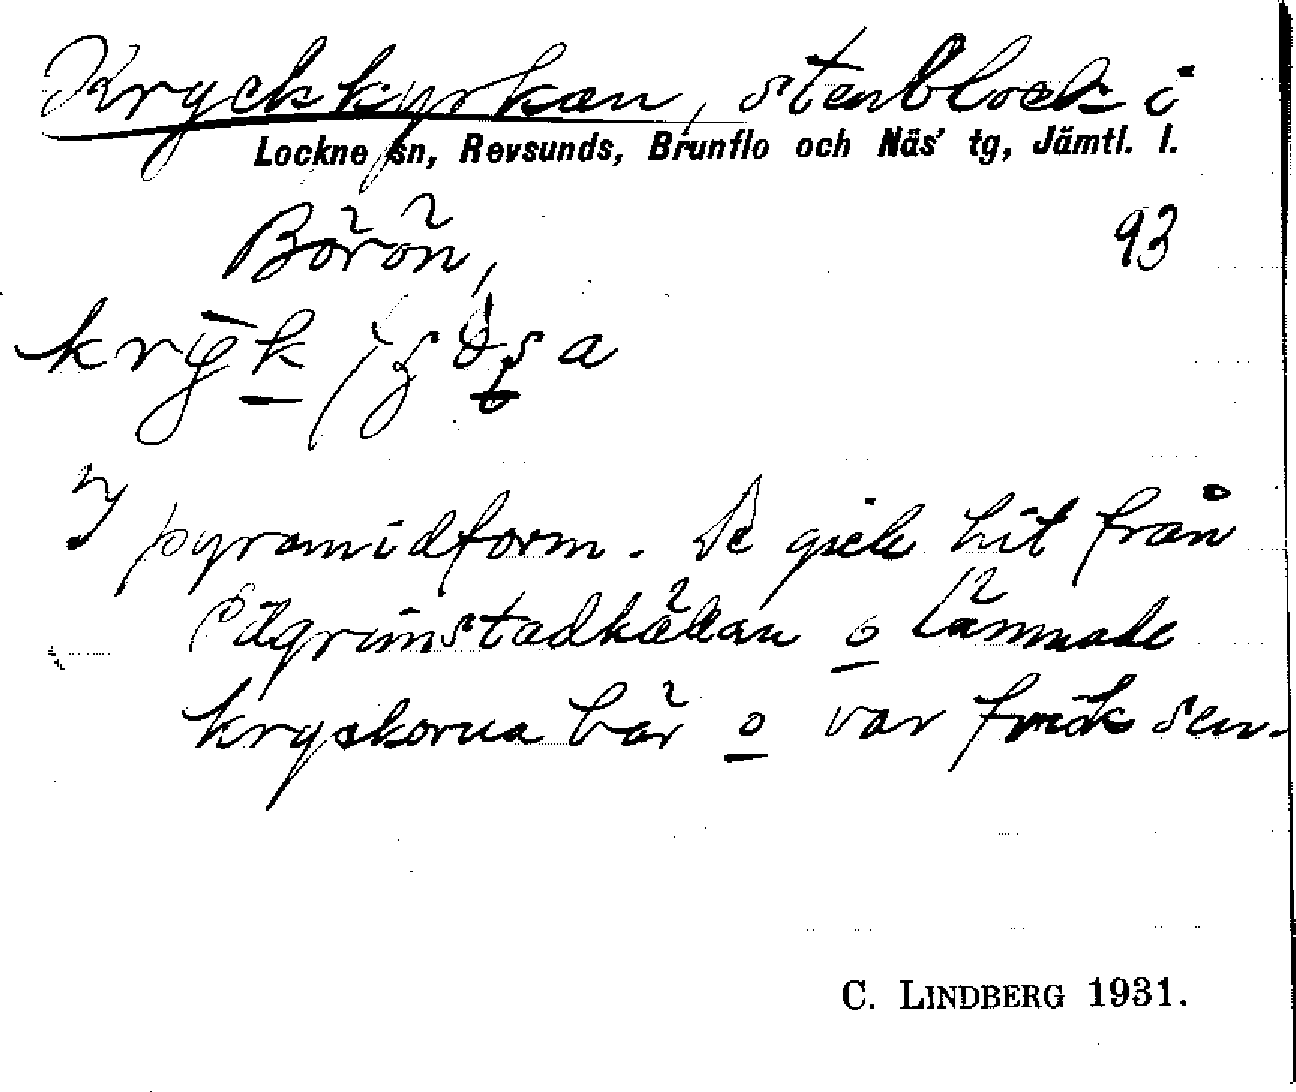 Kryckkyrkan, stenblock i
Lockne sn, Revsunds, Brunflo och Näs' tg, Jämtl. l.
Börön,
93
I pyramidform. De gick hit från
Pilgrimstadkällan o lämnade
kryckorna här o var frisk sen.
C. LINDBERG 1931.